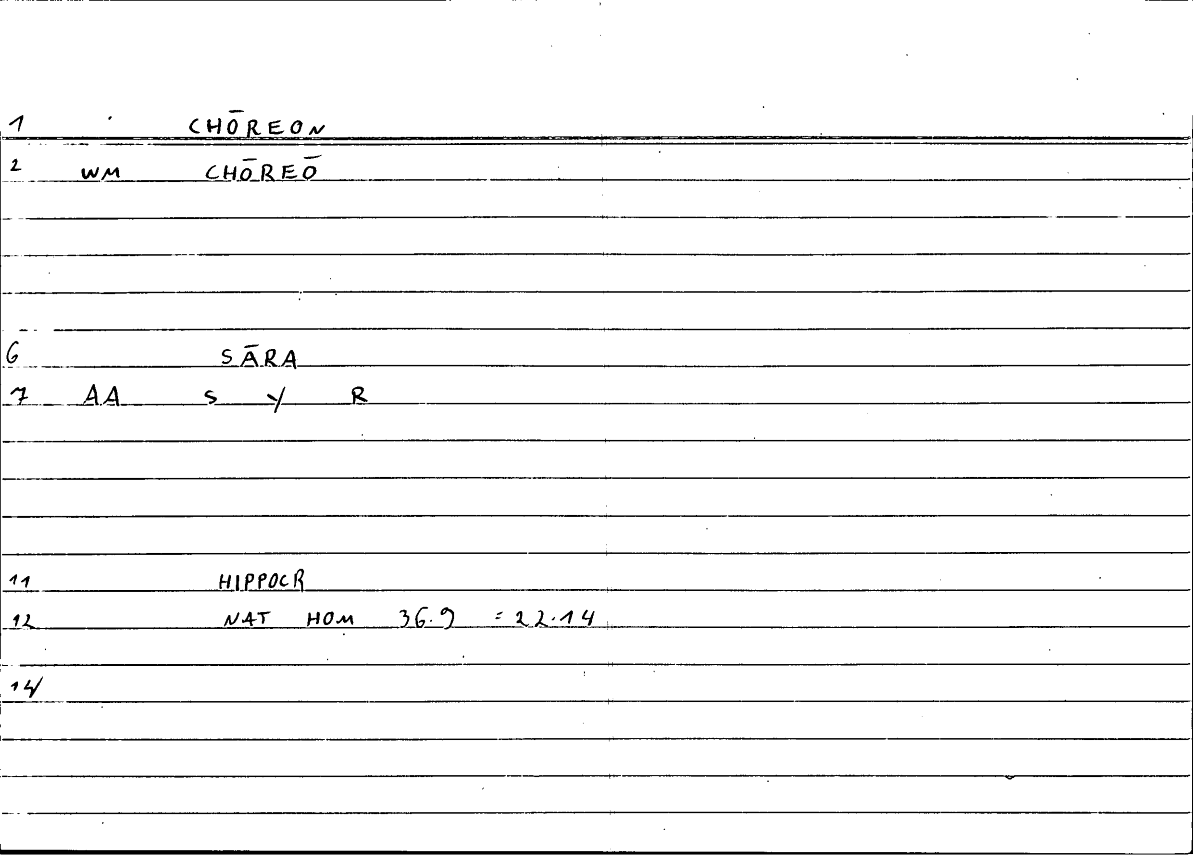 1 CHŌREON
2 WM CHŌREŌ
6 SĀRA
7 AA S Y R
11 HIPPOCR
12 NAT HOM 36.9 = 22.14
14